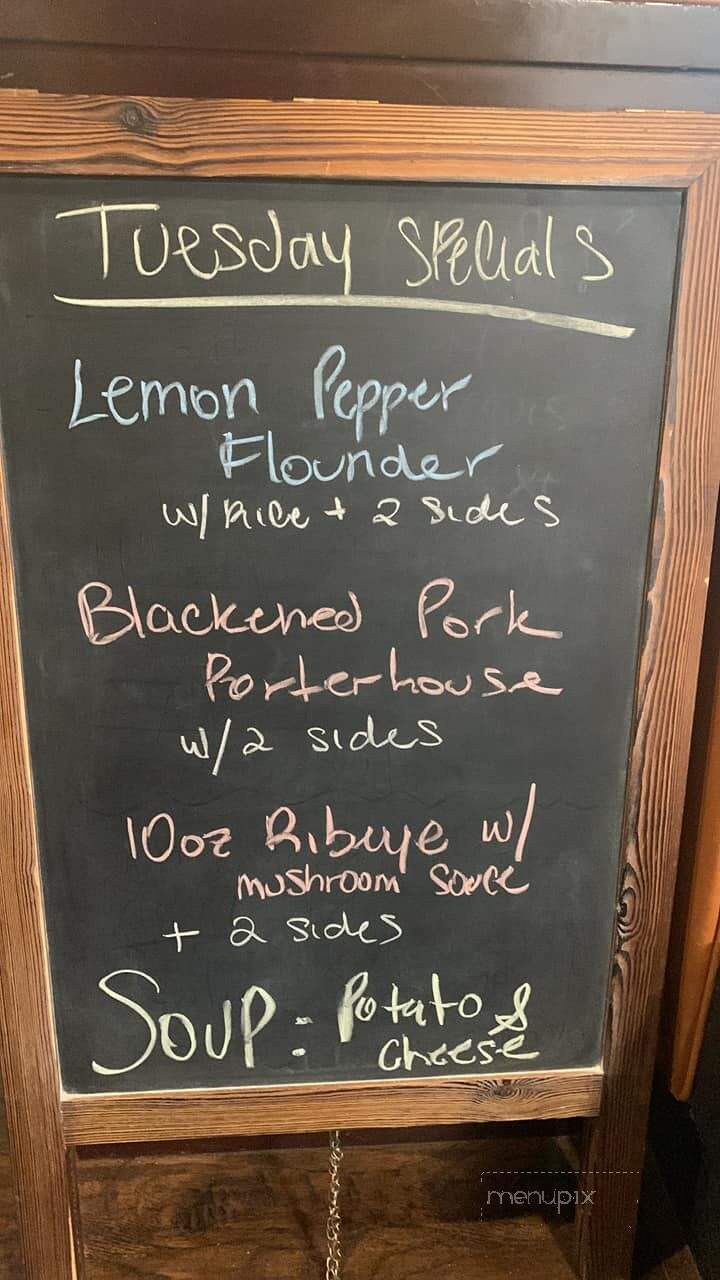 Tuesday Specials
Lemon Pepper
Flounder
w/ Rice + 2 sides
Blackened Pork
Porterhouse
w/2 sides
10oz Ribeye w/
mushroom sauce
+ 2 sides
Soup: Potato &
cheese
menupix